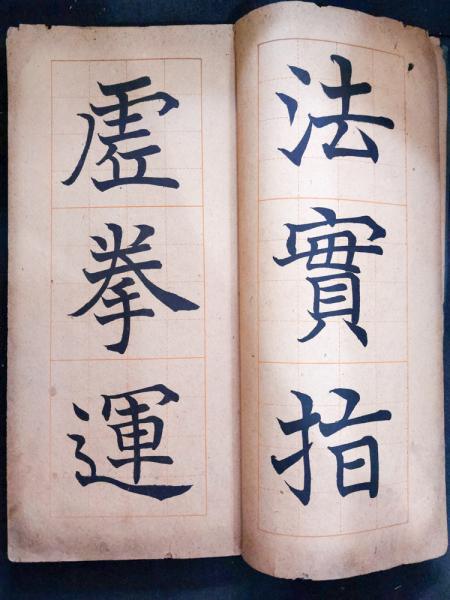 法實指
虛拳運